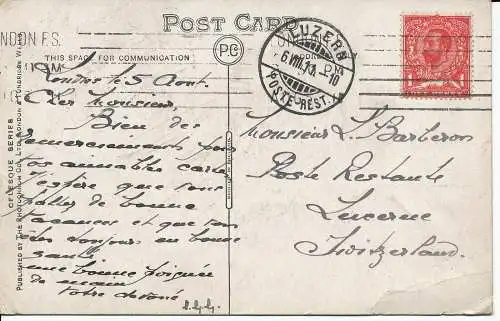 POST CARD
LONDON F.S.
THIS SPACE FOR COMMUNICATION
PC
LUZERN
6.VIII.13.-10
POSTE REST.
Londres le 5 Aout.
Cher Monsieur,
Bien des
remerciements pour
vos aimables cartes
J'espère que vous
de bonne
vacances et que vous
êtes toujours en bonne
santé
une bonne poignée
de main
Votre dévoué
Monsieur L. Barberon
Poste Restante
Lucerne
Switzerland.
CELESQUE SERIES
PUBLISHED BY THE PHOTOCHROM CO., LTD., LONDON & TUNBRIDGE WELLS